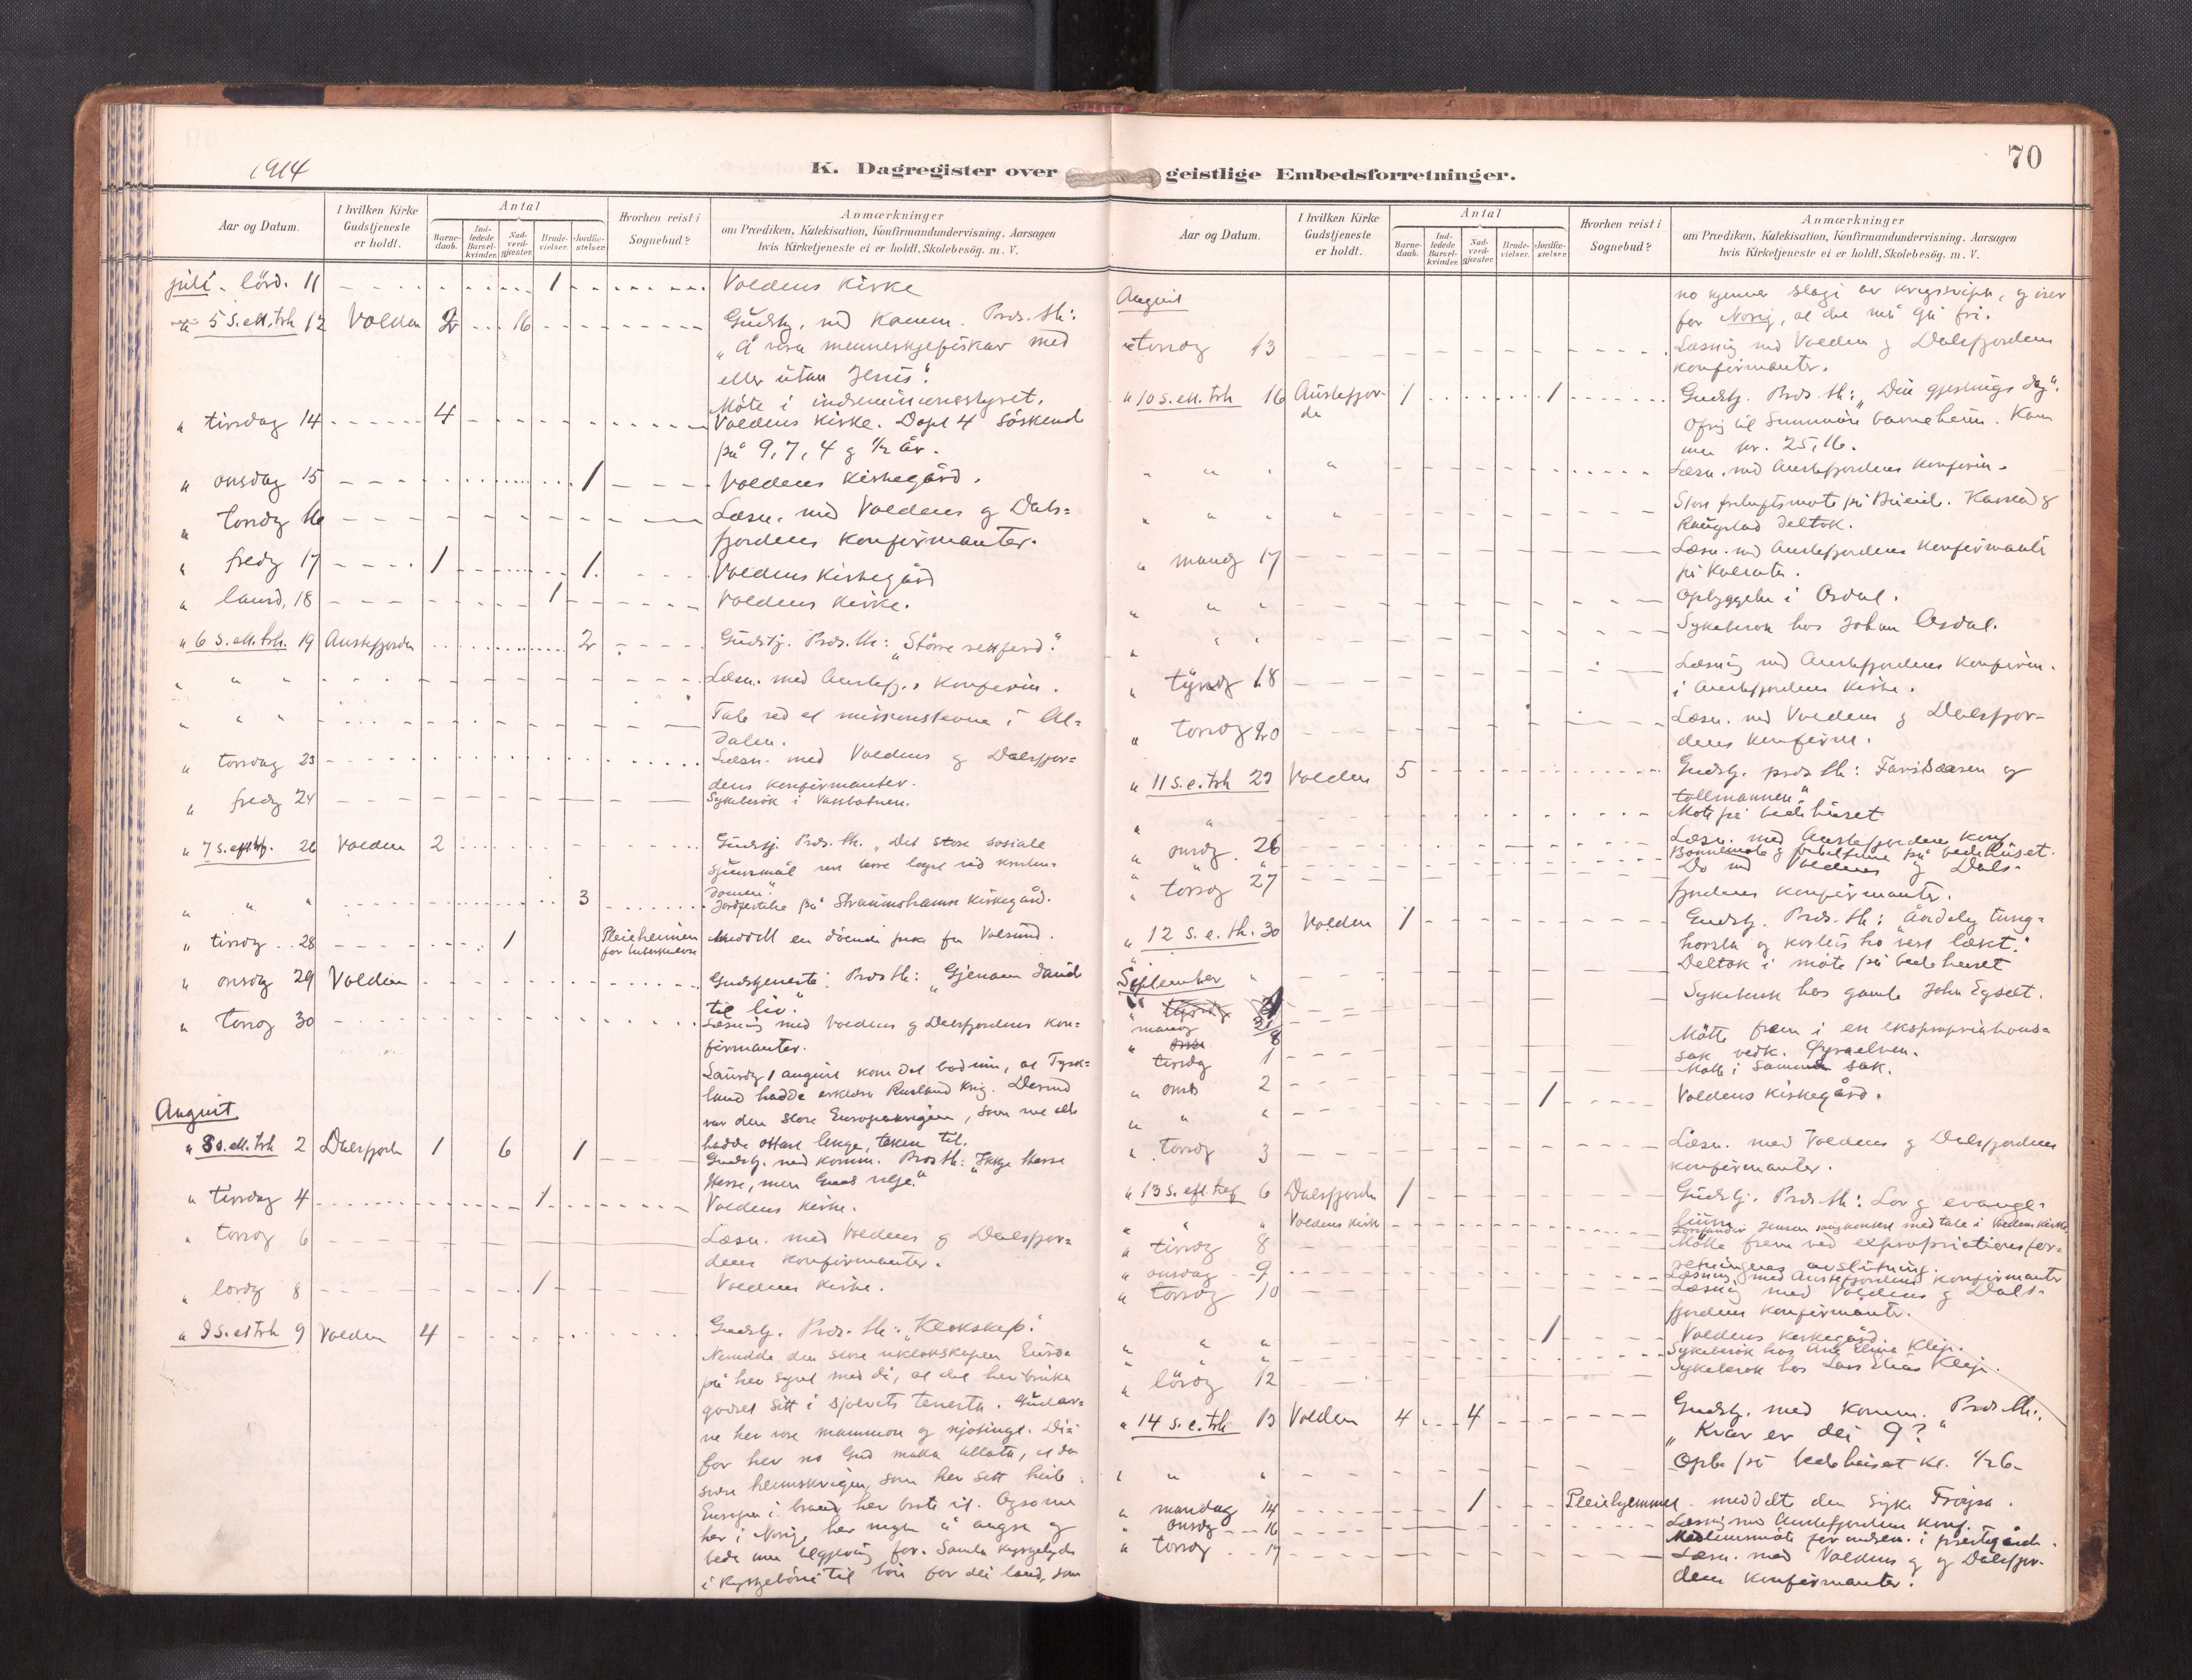 1914
K. Dagregister over
Aar og Datum.
I hvilken Kirke Gudstjeneste er holdt.
Antal
Barnedaab.
Indledede Barselkvinder.
Nadverdgjæster.
Brudevielser.
Jordfæstelser.
Hvorhen reist i Sognebud?
Anmærkninger
om Prædiken, Katekisation, Konfirmandundervisning. Aarsagen
hvis Kirketjeneste ei er holdt, Skolebesög. m. V.
juli - lörd. 11 1 Voldens Kirke
" 5 S. ett. trh 12 Volden 2 16 Gudstj. med Komm. Prds. th:
"Å vera menneskjefiskar med
eller utan Jesus".
Möte i indremissionsstyret.
" tirsdag 14 4 Voldens Kirke. Döpt 4 söskend
på 9, 7, 4 og 1/2 år.
" onsdag 15 1 Voldens Kirkegård.
" torsdg 16 Læsn. med Voldens og Dals=
fjordens Konfirmanter.
" fredg 17 1 1. Voldens Kirkegård
" laurd. 18 1 Voldens Kirke.
" 6 S. ett. trh. 19 Austefjorden 2 Gudstj. Prds. th: "Större rettferd".
" " " Læsn. med Austefj.s Konfirm.
" " " Tale ved et missionsstevne i
dalen.
" torsdag 23 Læsn. med Voldens og Dalsfjor=
dens konfirmanter.
" fredg 24 Sykebesök i Vassbotnen.
" 7 S. eft. trf. 26 Volden 2 Gudstj. Prds. th. "Det store sosiale
spursmål
domen".
" " " 3 Jordfestelse på Straumshamn Kirkegård.
" tirsdg 28 1 Pleieheimen
for tuberkulose Meddelt en döende fra Volsund.
" onsdg 29 Volden Gudstjeneste. Prds th: "Gjenom daud
til liv".
" torsdg 30 Læsning med Voldens og Dalsfjordens kon=
firmanter.
Laurdg 1 august kom det bod um, at Tysk=
land hadde erklært Rusland krig. Dermed
var den store Europakrigen, som me alle
hadde ottast lenge, teken til.
August
" 8 S. ett. trh 2 Dalsfjorden 1 6 1 Gudstj. med komm. Prds th: "Ikkje Herre
Herre, men Guds vilje".
" tirsdag 4 1 Voldens Kirke.
" torsdg 6 Læsn. med Voldens og Dalsfjor=
dens konfirmanter.
" lördg 8 1 Voldens Kirke.
" 9 S. et trh 9 Volden 4 Gudstj. Prds. th: "Klokskap".
Nemnde den store uklokskapen Europa
på her synt med di, at det her bruka
godset sitt i sjølvets tenesta.
ne her vore mammon og njotings. Di=
for her no Gud måtta tillata, at den
store heimskrigen, som her sett heile
Europa i brand her brote ut. Ogso me
her i Norig her mykje å angra og
beda um tilgjeving for. Samla kyrkjelyde
i kyrkjebön til bön for dei land, som
70
geistlige Embedsforretninger.
Aar og Datum.
I hvilken Kirke Gudstjeneste er holdt.
Antal
Barnedaab.
Indledede Barselkvinder.
Nadverdgjæster.
Brudevielser.
Jordfæstelser.
Hvorhen reist i Sognebud?
Anmærkninger
om Prædiken, Katekisation, Konfirmandundervisning. Aarsagen
hvis Kirketjeneste ei er holdt, Skolebesög. m. V.
August no kjenner slagi av krigssvipa, og iser
for Norig, at det må gå fri.
" torsdg 13 Læsning med Volden og Dalsfjordens
konfirmanter.
" 10 S. ett. trh 16 Austefjor-
den 1 1 Gudstj. Prds. th: "Din gjestings dag".
Ofring til Sunnmöre barneheim. Kom
inn kr. 25,16.
" " " " Læsn. med Austefjordens Konfirm.
" " " " Stort friluftsmöte på
deltok.
" mandg 17 Læsn. med Austefjordens konfirmanter
på
" " " Opbyggelse i Osdal.
" " " Sykebesök hos Johan Osdal.
" tysdg 18 Læsning med Austefjordens Konfirm.
i Austefjordens Kirke.
" torsdg 20 Læsn. med Voldens og Dalsfjor-
dens konfirm.
" 11 S. e. trh 23 Volden 5 Gudstj. prds th: Farisæaren og
tollmannen"
" " Möte på bedehuset
" onsdg. 26 Læsn. med Austefjordens konf.
" " " Bönnemöte og på bedehuset.
" torsdg 27 Do med Voldens og Dals-
fjordens konfirmanter.
" 12 S. e. th. 30 Volden 1 Gudstj. Prds. th: Åndeleg tung=
horsla og korleis ho vert lækt".
Deltok i möte på bedehuset
September
" " Sykebesök hos gamle John Egset.
" mandg 31 Mötte frem i en ekspropriations=
sak vedk.
" tirsdg 1 Mötte i samme sak.
" onsd 2
" " " 1 Voldens Kirkegård.
" torsdg 3 Læsn. med Voldens og Dalsfjordens
konfirmanter.
" 13 S. eft. tref 6 Dalsfjorden 1 Gudstj. Prds. th: Lov og evange-
lium
" " " Voldens Kirke Jensen sangkonsert med tale i Voldens Kirke
" tirsdg 8 Mötte frem ved expropriationsfor=
retningens avslutning.
" onsdag 9 Læsning med Austefjordens konfirmanter
" torsdg 10 Læsning med Voldens og Dals-
fjordens konfirmanter.
" " " 1 Voldens kirkegård.
" " " Sykebesök hos Ane Elina Klep.
" lördg 12 Sykebesök hos Lars Elias Klep.
" 14 S. e. trh 13 Volden 4 4 Gudstj. med komm. Prds. th:
"Kvar er dei 9?"
" " " Opb. på bedehuset kl. 1/2 6
" mandag 14 1 Pleiehjemmet meddelte den syke
" onsdg 16 Læsning med Austefjordens konf.
Medlemsmöte for indrem. i prestegården.
" torsdg 17 Læsn. med Voldens og Dalsfjor-
dens konfirmanter.